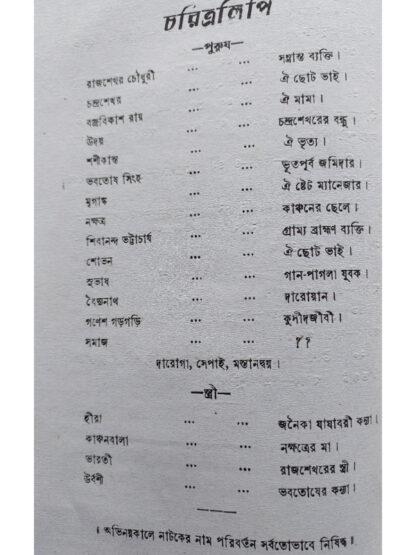 চরিত্রলিপি
—পুরুষ—
রাজশেখর চৌধুরী ... ... সম্ভ্রান্ত ব্যক্তি।
চন্দ্রশেখর ... ... ঐ ছোট ভাই।
বজ্রবিকাশ রায় ... ... ঐ মামা।
উদয় ... ... চন্দ্রশেখরের বন্ধু।
শশীকান্ত ... ... ঐ ভৃত্য।
ভবতোষ সিংহ ... ... ভূতপূর্ব জমিদার।
মৃগাঙ্ক ... ... ঐ ষ্টেট ম্যানেজার।
নক্ষত্র ... ... কাঞ্চনের ছেলে।
শিবানন্দ ভট্টাচার্য ... ... গ্রাম্য ব্রাহ্মণ ব্যক্তি।
শোভন ... ... ঐ ছোট ভাই।
সুভাষ ... ... গান-পাগলা যুবক।
বৈদ্যনাথ ... ... দারোয়ান।
গণেশ গড়গড়ি ... ... কুসীদজীবী।
সমাজ ... ... ? ?
দারোগা, সেপাই, মস্তানদ্বয়।
—স্ত্রী—
হীরা ... ... জনৈকা যাযাবরী কন্যা।
কাঞ্চনবালা ... ... নক্ষত্রের মা।
ভারতী ... ... রাজশেখরের স্ত্রী।
উর্বশী ... ... ভবতোষের কন্যা।
। অভিনয়কালে নাটকের নাম পরিবর্তন সর্বতোভাবে নিষিদ্ধ।